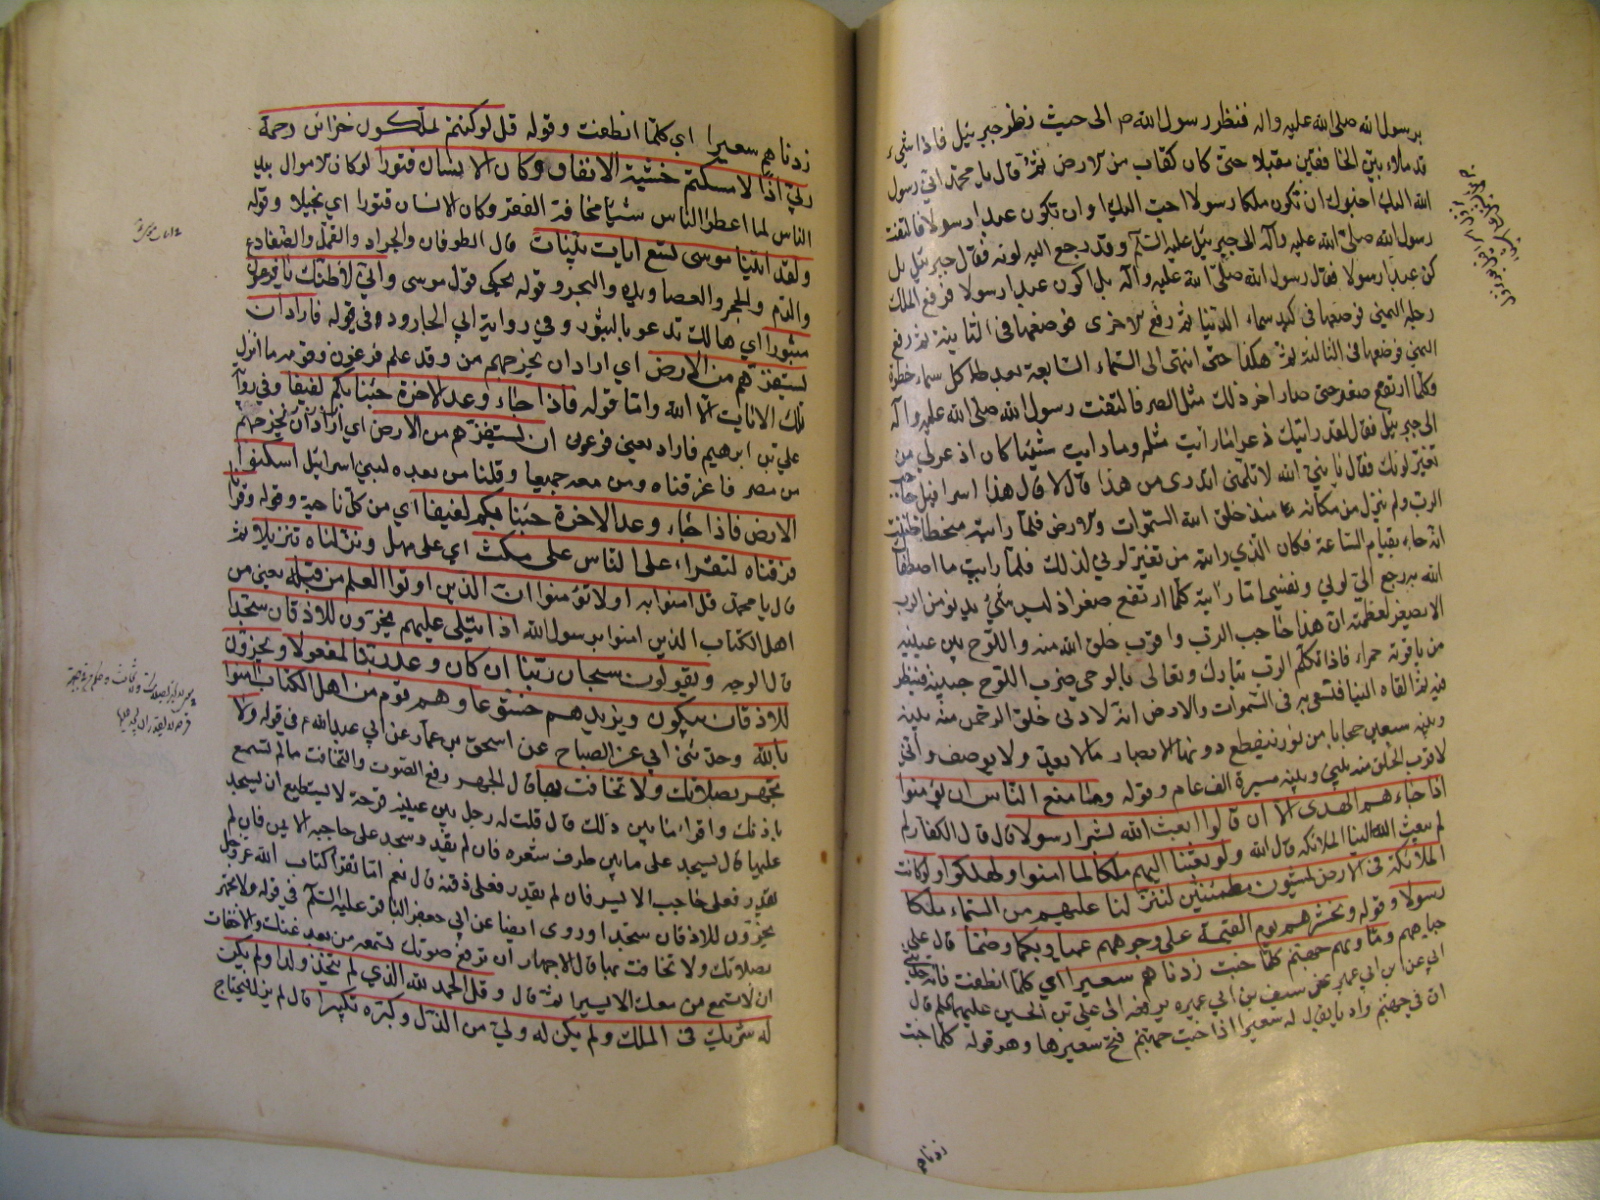 برسول الله صلى الله عليه واله فنظر رسول الله ص الى حيث نظر جبرئيل فاذا شيء
قد ملاء بين الخافقين مقبلا حتى كان كقاب من الارض ثم قال يا محمد اني رسول
الله اليك اخبرك ان تكون ملكا رسولا احب اليك او ان تكون عبدا رسولا فالتفت
رسول الله صلى الله عليه وآله الى جبرئيل عليه السلم وقد رجع اليه لونه فقال جبرئيل بل
كن عبدا رسولا فقال رسول الله صلى الله عليه وآله بل اكون عبدا رسولا فرفع الملك
رجله اليمنى فوضعها في كبد سماء الدنيا ثم رفع الاخرى فوضعها في الثانية ثم رفع
اليمنى فوضعها في الثالثة ثم هكذا حتى انتهى الى السماء السابعة بعد كل سماء خطوة
وكلما ارتفع صغر حتى صار اخر ذلك مثل الصر فالتفت رسول الله صلى الله عليه وآله
الى جبرئيل فقال لقد رايتك ذعرا ما رايت مثله وما رايت شيئا كان اذعر لي من
تغير لونك فقال يا نبي الله لا تلمني اتدرى من هذا قال لا قال هذا اسرافيل حاجب
الرب ولم ينزل من مكانه منذ خلق الله السموات والارض فلما رايته منحطا ظننت
انه جاء بقيام الساعة فكان الذي رايته من تغير لوني لذلك فلما رايت ما اصطفا
الله به رجع الي لوني ونفسي اما رايته كلما ارتفع صغر اذ ليس شيء يدنو من الرب
الا يصغر لعظمته ان هذا حاجب الرب واقرب خلق الله منه واللوح بين عينيه
من ياقوتة حمراء فاذا تكلم الرب تبارك وتعالى بالوحي ضرب اللوح جبينه فنظر
فيه ثم القاه الينا فنسعى به في السموات والارض انه لادنى خلق الرحمن منه وبينه
وبينه سبعين حجابا من نور تنقطع دونها الابصار ما لا يعد ولا يوصف واني
لاقرب الخلق منه بيني وبينه مسيرة الف عام وقوله وما منع الناس ان يؤمنوا
اذا جاءهم الهدى الا ان قالوا ابعث الله بشرا رسولا قال قال الكفار لم
لم يبعث الله الينا الملائكة فقال الله ولو بعثنا اليهم ملكا لما امنوا ولهلكوا ولو كانت
الملائكة في الارض يمشون مطمئنين لنزلنا عليهم من السماء ملكا
رسولا وقوله ونحشرهم يوم القيمة على وجوههم عميا وبكما وصما قال على
جباههم وماويهم جهنم كلما خبت زدناهم سعيرا اي كلما انطفت فانه حدثني
ابي عن ابن ابي عمير عن سيف بن ابي عميره يرفعه الى علي بن الحسين عليهما السلم قال
ان في جهنم واد يا يقال له سعيرا اذا خبت جهنم فتح سعيرها وهو قوله كلما خبت
زدناهم
زدناهم سعيرا اي كلما انطفت وقوله قل لو كنتم تملكون خزائن رحمة
ربي اذا لامسكتم خشية الانفاق وكان الانسان قتورا لو كان الاموال بيد
الناس لما اعطوا الناس شيئا مخافة الفقر وكان الانسان قتورا اي بخيلا وقوله
ولقد اتينا موسى تسع ايات بينات قال الطوفان والجراد والقمل والضفادع
والدم والحجر والعصا ويده والبحر وقوله يحكي قول موسى واني لاظنك يا فرعون
مثبورا اي هالك تدعو بالثبور وفي رواية ابي الجارود وفي قوله فاراد ان
يستفزهم من الارض اي اراد ان يخرجهم من وقد علم فرعون وقومه ما انزل
تلك الايات الا الله واما قوله فاذا جاء وعد الاخرة جئنا بكم لفيفا وفي رواية
علي بن ابرهيم فاراد يعني فرعون ان يستفزهم من الارض اي اراد ان يخرجهم
من مصر فاغرقناه ومن معه جميعا وقلنا من بعده لبني اسرائيل اسكنوا
الارض فاذا جاء وعد الاخرة جئنا بكم لفيفا اي من كل ناحية وقوله وقرانا
فرقناه لتقراء على الناس على مكث اي على مهل ونزلناه تنزيلا ثم
قال يا محمد قل امنوا به او لا تؤمنوا ان الذين اوتوا العلم من قبله يعني من
اهل الكتاب الذين امنوا برسول الله اذا يتلى عليهم يخرون للاذقان سجدا
قال الوجه ويقولون سبحان ربنا ان كان وعد ربنا لمفعولا ويخرون
للاذقان يبكون ويزيدهم خشوعا وهم قوم من اهل الكتاب امنوا
بالله وحدثني ابي عن الصباح عن اسحق بن عمار عن ابي عبد الله ع في قوله ولا
تجهر بصلاتك ولا تخافت بها قال الجهر رفع الصوت والتخافت ما لم تسمع
باذنك واقراء ما بين ذلك قال قلت له رجل بين عينيه قرحة لا يستطيع ان يسجد
عليها قال يسجد على ما بين طرف شعره فان لم يقدر سجد على حاجبه الايمن فان لم
يقدر فعلى حاجب الايسر فان لم يقدر فعلى ذقنه قال نعم اما تقرا كتاب الله عز وجل
يخرون للاذقان سجدا وروى ايضا عن ابي جعفر الباقر عليه السلم في قوله ولا تجهر
بصلاتك ولا تخافت بها قال الاجهار ان ترفع صوتك تسمعه من بعد عنك والاخفات
ان لا تسمع من معك الا يسيرا ثم قال وقل الحمد لله الذي لم يتخذ ولدا ولم يكن
له شريك في الملك ولم يكن له ولي من الذل وكبره تكبيرا قال لم يذل فيحتاج